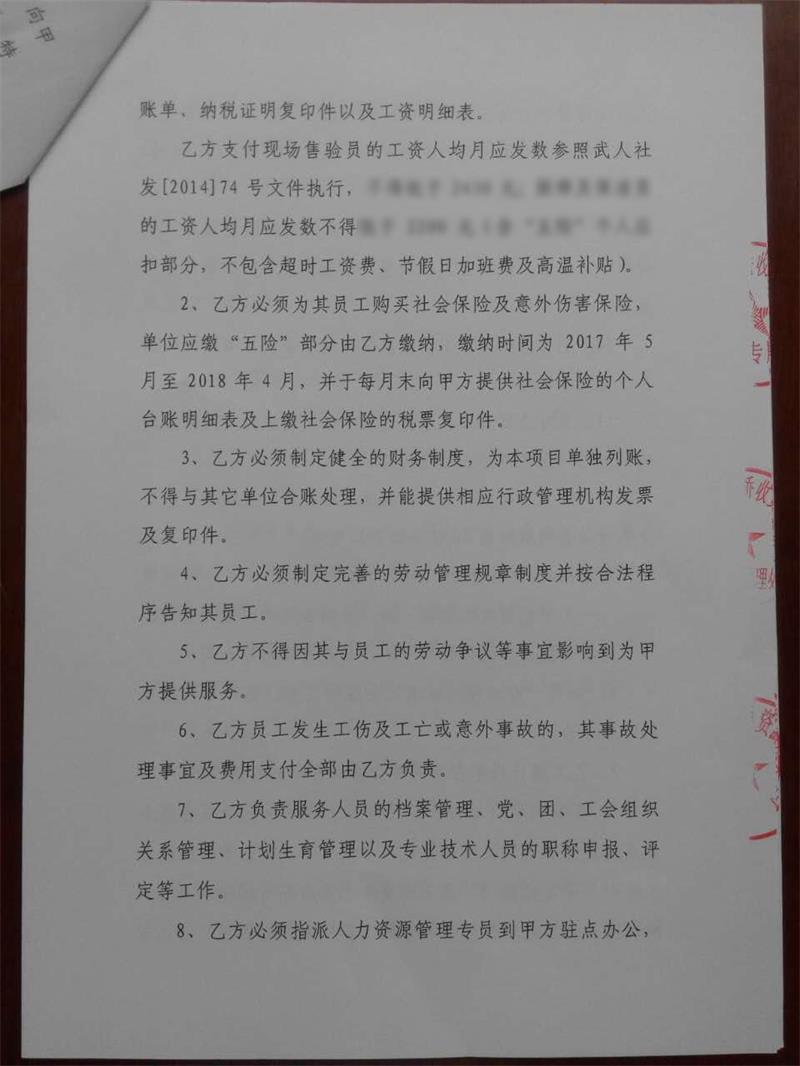 向甲
特
账单、纳税证明复印件以及工资明细表。
乙方支付现场售验员的工资人均月应发数参照武人社
发[2014]74 号文件执行，
的工资人均月应发数不得
扣部分，不包含超时工资费、节假日加班费及高温补贴）。
2、乙方必须为其员工购买社会保险及意外伤害保险，
单位应缴“五险”部分由乙方缴纳，缴纳时间为 2017 年 5
月至 2018 年 4 月，并于每月末向甲方提供社会保险的个人
台账明细表及上缴社会保险的税票复印件。
3、乙方必须制定健全的财务制度，为本项目单独列账，
不得与其它单位合账处理，并能提供相应行政管理机构发票
及复印件。
4、乙方必须制定完善的劳动管理规章制度并按合法程
序告知其员工。
5、乙方不得因其与员工的劳动争议等事宜影响到为甲
方提供服务。
6、乙方员工发生工伤及工亡或意外事故的，其事故处
理事宜及费用支付全部由乙方负责。
7、乙方负责服务人员的档案管理、党、团、工会组织
关系管理、计划生育管理以及专业技术人员的职称申报、评
定等工作。
8、乙方必须指派人力资源管理专员到甲方驻点办公，
收
专
桥收
理处
资